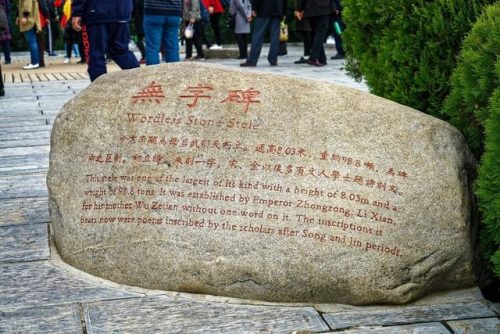 無字碑
Wordless Stone Stele
中宗李顯為母后武則天所立。通高8.03米，重約98.8噸，為碑
中之巨制，初立時，未刻一字，宋、金以後多有文人學士題詩刻文。
This stele was one of the largest of its kind with a height of 8.03m and a
weight of 98.8 tons. It was established by Emperor Zhongzong, Li Xian,
for his mother Wu Zetian without one word on it. The inscriptions it
bears now were poems inscribed by the scholars after Song and Jin periods.